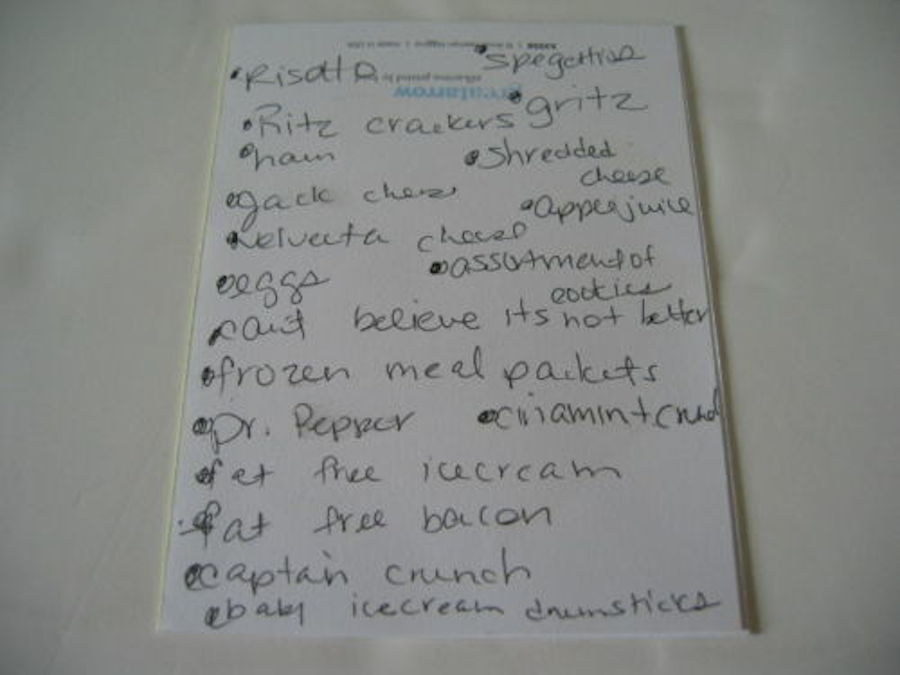 Risotto
spegettios
gritz
Ritz crackers
ham
shredded
cheese
Jack chese
appeejuice
Velveeta cheese
assortment of
cookies
eggs
cant believe its not better
frozen meal packets
Dr. Pepper
cinamin t crunch
fat free icecream
fat free bacon
captain crunch
baby icecream drumsticks
greatarrow